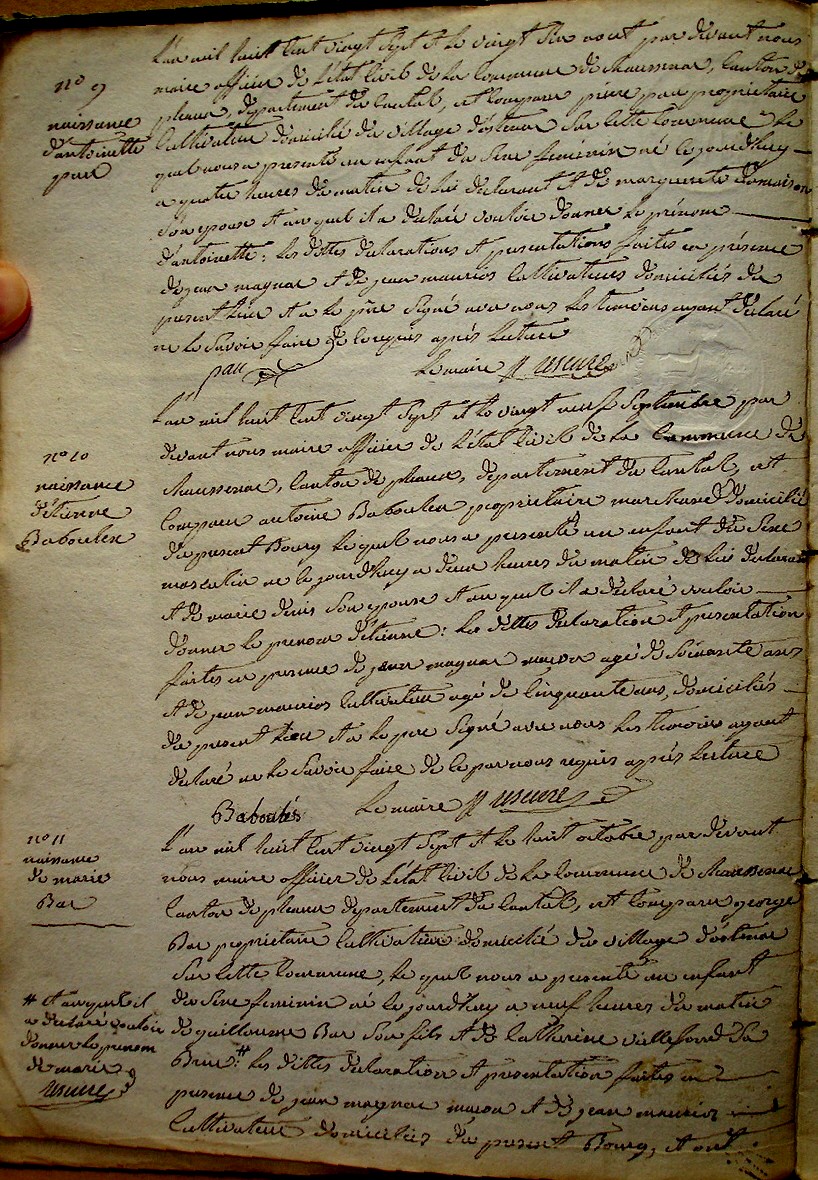 n° 9
naissance
d'antoinette
pau
L'an mil huit cent vingt sept et le vingt six aout par devant nous
maire officier de l'état civil de la commune de chaussenac, canton de
pleaux, département du cantal, est comparu pierre pau propriétaire
cultivateur domicilié du village d'ostenac sur cette commune le
quel nous a présenté un enfant du sexe feminin né le jourdhuy
a quatre heures du matin de lui déclarant et de marguerite
son epouse et au quel il a déclaré vouloir donner le prénom
d'antoinette: les dittes déclarations et presentations faites en présence
de jean magnac et de jean maurios cultivateurs domiciliés du
present lieu et a le père signé avec nous les temoins ayant déclaré
ne le savoir faire de ce requis après lecture
pau Le maire
n° 10
naissance
d'étienne
Baboulex
L'an mil huit cent vingt sept et le vingt neuf septembre par
devant nous maire officier de l'état civil de la commune de
chaussenac, canton de pleaux, département du cantal, est
comparu antoine Baboulex propriétaire marchand domicilié
du present Bourg le quel nous a presenté un enfant du sexe
masculin né le jourdhuy a deux heures du matin de lui déclarant
et de marie denis son epouse et au quel il a déclaré vouloir
donner le prenom d'étienne: les dittes declaration et presentation
faites en presence de jean magnac macon agé de soixante ans
et de jean maurios cultivateur agé de cinquante ans, domiciliés
du present lieu et a le pere signé avec nous les temoins ayant
declaré ne le savoir faire de ce par nous requis après lecture
Le maire
n° 11
naissance
de marie
Bac
L'an mil huit cent vingt sept et le huit octobre par devant
nous maire officier de l'état civil de la commune de chaussenac
canton de pleaux departement du cantal, est comparu george
Bac propriétaire cultivateur domicilié du village d'ostenac
sur cette commune, le quel nous a presenté un enfant
du sexe feminin né le jourdhuy a neuf heures du matin
de guillaume Bac son fils et de catherine
# les dittes declaration et presentation faites en
presence de jean magnac macon et de jean maurios
cultivateur domiciliés du present Bourg, et ont
# et au quel il
a declaré vouloir
donner le prenom
de marie